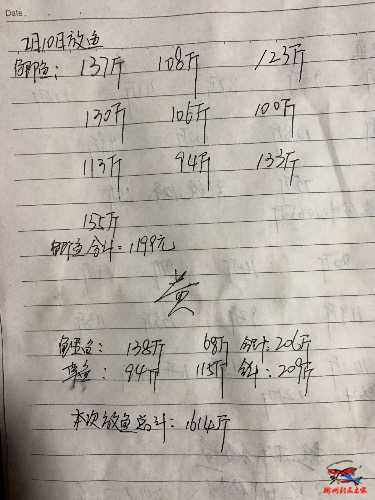 Date
2月10日放鱼
鲫鱼: 137斤 108斤 123斤
130斤 106斤 100斤
113斤 94斤 133斤
155斤
鲫鱼合计: 1199元
黄
鲤鱼: 138斤 68斤 合计: 206斤
草鱼: 94斤 115斤 合计: 209斤
本次放鱼总计: 1614斤
柳州钓友之家